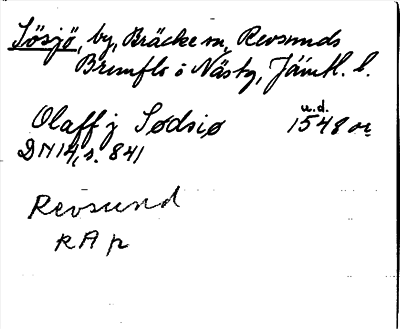 Sösjö, by, Bräcke sn, Revsunds
Brunflo o Näs tg, Jämtl. l.
Olaff j Sødsiø
u.d.
1548 or
DN 14, s. 841
Revsund
RAp